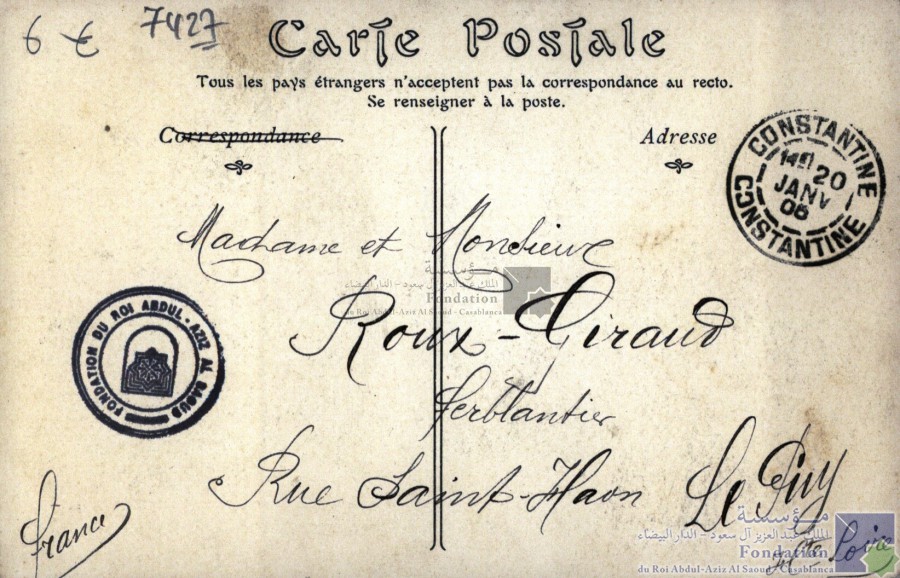 6 €
7427
Carte Postale
Tous les pays étrangers n'acceptent pas la correspondance au recto.
Se renseigner à la poste.
Correspondance
Adresse
CONSTANTINE
20
JANV
CONSTANTINE
Madame et Monsieur
مؤسسة
الملك عبد العزيز آل سعود - الدار البيضاء
Fondation
du Roi Abdul-Aziz Al Saoud - Casablanca
Roux-Giraud
Ferblantier
FONDATION DU ROI ABDUL-AZIZ AL SAOUD
Rue Saint-Haon Le Puy
Hte Loire
France
مؤسسة
الملك عبد العزيز آل سعود - الدار البيضاء
Fondation
du Roi Abdul-Aziz Al Saoud - Casablanca